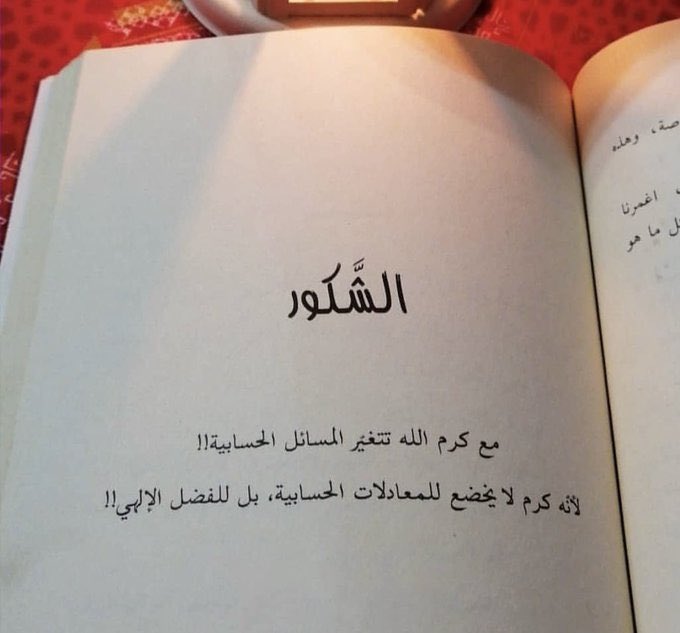 الشَّكور
مع كرم الله تتغيّر المسائل الحسابية!!
لأنه كرم لا يخضع للمعادلات الحسابية، بل للفضل الإلهي!!
وهذه
اغمرنا
ما هو